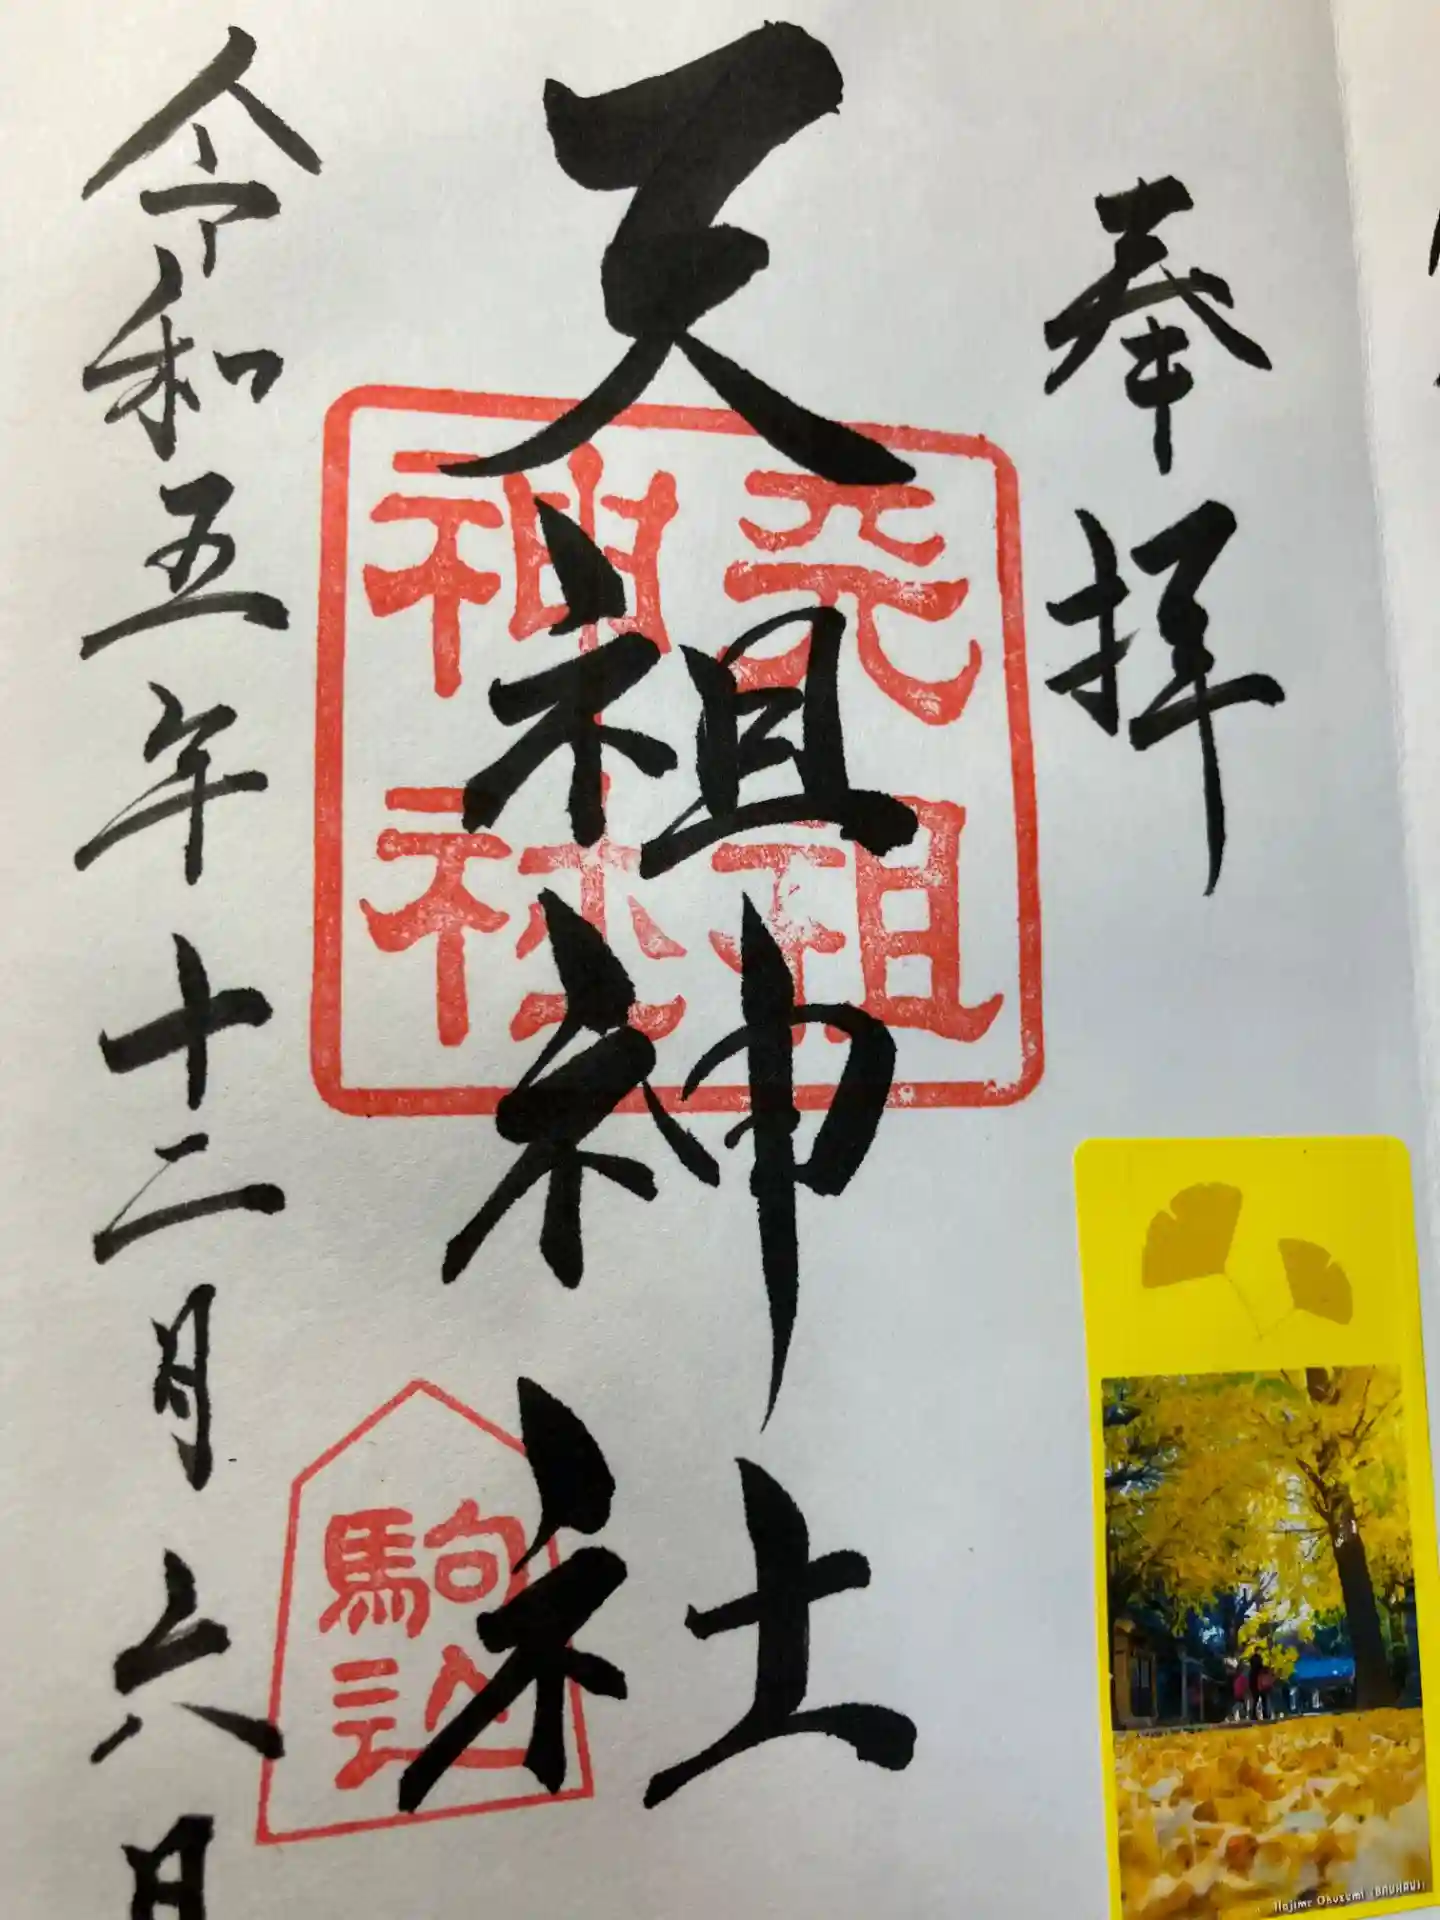 奉拝
天祖神社
天祖
神社
駒込
令和五年十二月六日
Hajime Okuzumi (BAUHAUS)